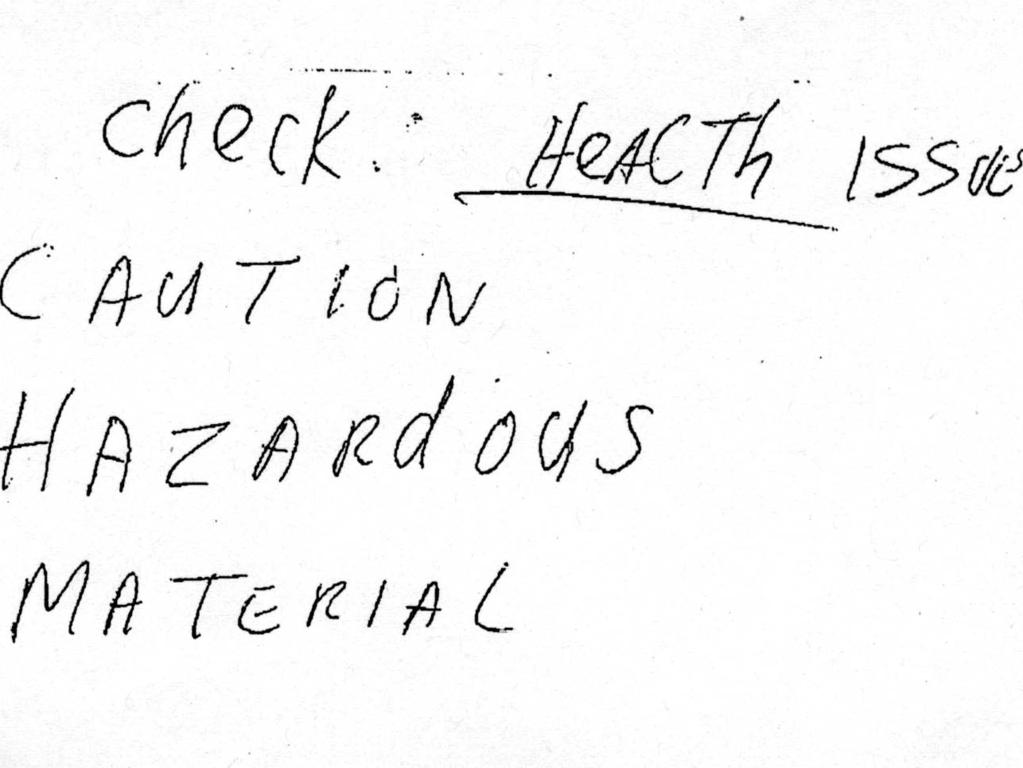 Check: HeALTh ISSues
CAUTION
HAZARdOUS
MATERIAL